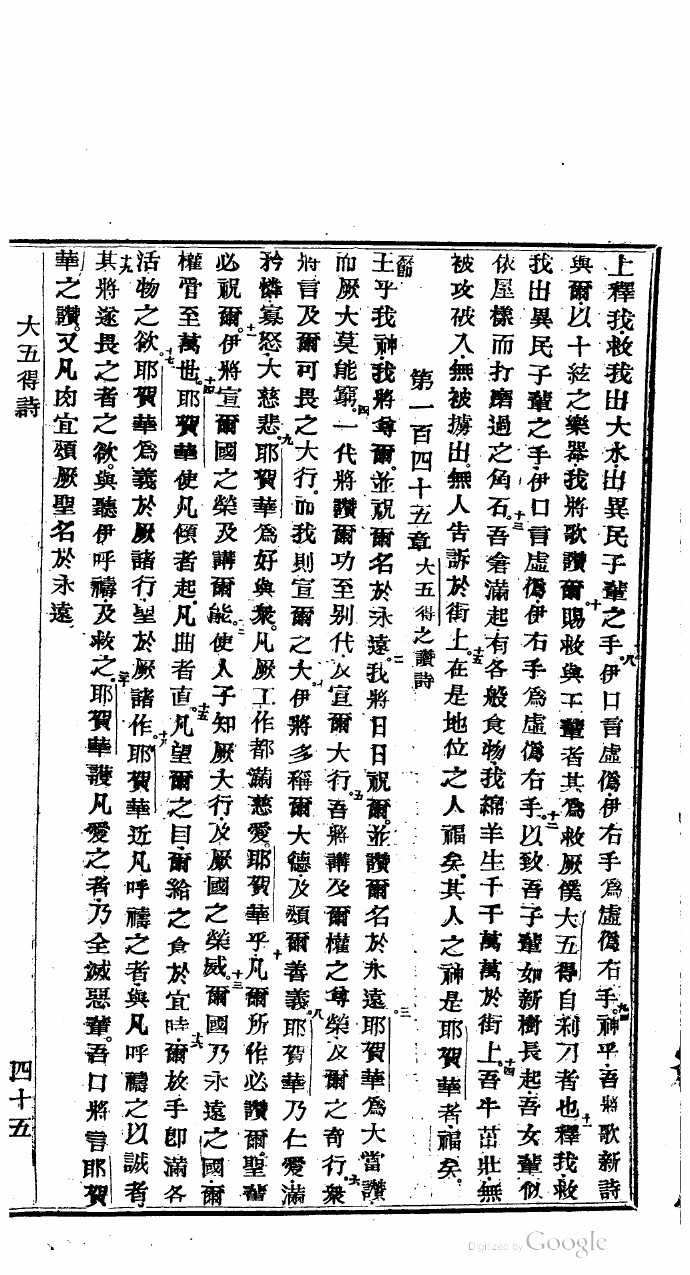 上釋我救我出大水出異民子輩之手八伊口言虛僞伊右手為虛僞右手九神乎吾將歌新詩
與爾以十絃之樂器我將歌讚爾十賜救與王輩者其為救厥僕大五得自利刀者也十一釋我救
我出異民子輩之手伊口言虛僞伊右手為虛僞右手十二以致吾子輩如新樹長起吾女輩似
依屋樣而打磨過之角石十三吾倉滿起有各般食物我綿羊生千千萬萬於街上十四吾牛茁壯無
被攻破入無被擄出無人告訴於街上十五在是地位之人福矣其人之神是耶賀華者福矣
第一百四十五章 大五得之讚詩
王乎我神我將尊爾並祝爾名於永遠二我將日日祝爾並讚爾名於永遠三耶賀華為大當讚
而厥大莫能窮四一代將讚爾功至別代及宣爾大行五吾將講及爾權之尊榮及爾之奇行六衆
將言及爾可畏之大行而我則宣爾之大七伊將多稱爾大德及頌爾善義八耶賀華乃仁愛滿
矜憐寡怒大慈悲九耶賀華為好與衆凡厥工作都滿慈愛十耶賀華乎凡爾所作必讚爾聖輩
必祝爾十一伊將宣爾國之榮及講爾能十二使人子知厥大行及厥國之榮威十三爾國乃永遠之國爾
權管至萬世十四耶賀華使凡傾者起凡曲者直十五凡望爾之目爾給之食於宜時十六爾放手即滿各
活物之欲十七耶賀華為義於厥諸行聖於厥諸作十八耶賀華近凡呼禱之者與凡呼禱之以誠者
十九其將遂畏之者之欲與聽伊呼禱及救之二十耶賀華護凡愛之者乃全滅惡輩吾口將言耶賀
華之讚又凡肉宜頌厥聖名於永遠
大五得詩
四十五
Digitized by Google